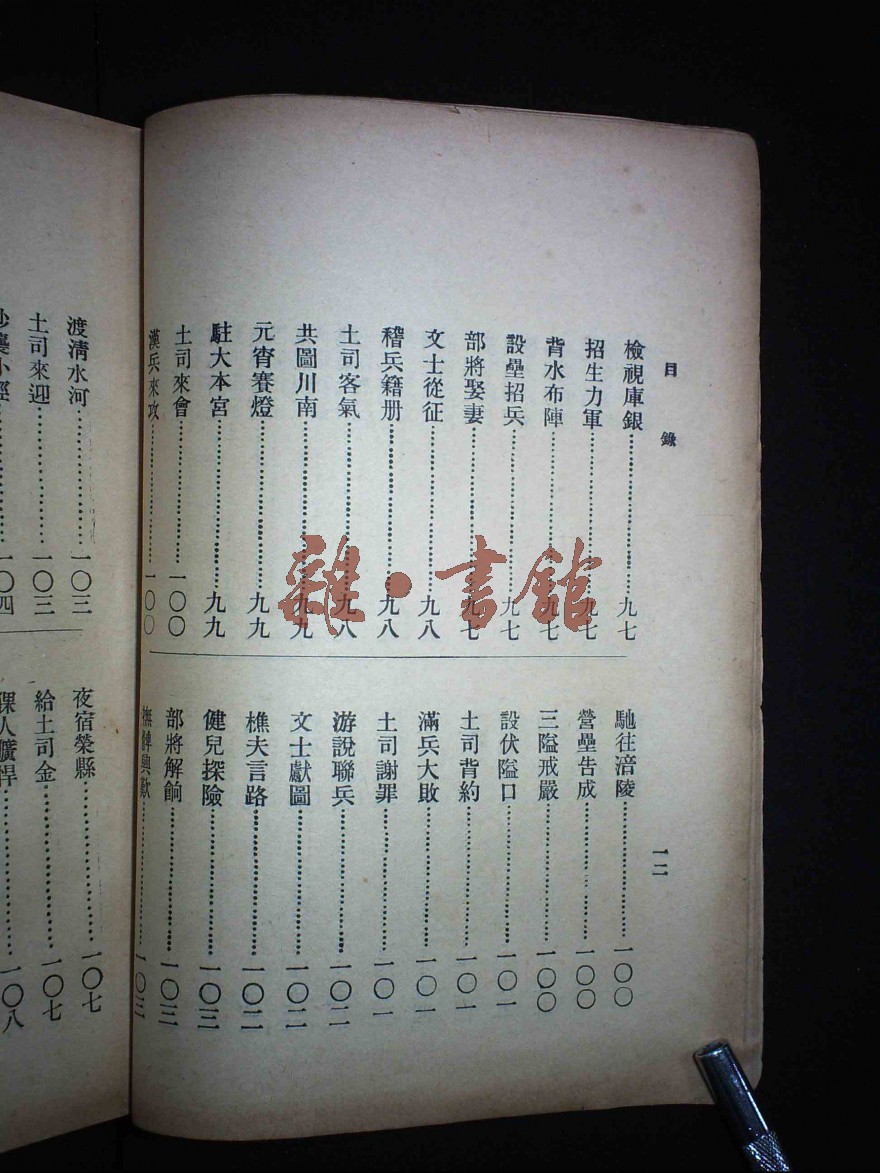 目錄
檢視庫銀……九七
招生力軍……九七
背水布陣……九七
設壘招兵……九七
部將娶妻……九七
文士從征……九八
稽兵籍册……九八
土司客氣……九八
共圖川南……九九
元宵賽燈……九九
駐大本宮……九九
土司來會……一〇〇
漢兵來攻……一〇〇
馳往涪陵……一〇〇
營壘告成……一〇〇
三隘戒嚴……一〇〇
設伏隘口……一〇一
土司背約……一〇一
滿兵大敗……一〇一
土司謝罪……一〇一
游說聯兵……一〇二
文士獻圖……一〇二
樵夫言路……一〇二
健兒探險……一〇三
部將解餉……一〇三
撫髀興歎……一〇三
一二
渡清水河……一〇三
土司來迎……一〇三
小徑……一〇四
夜宿榮縣……一〇七
給土司金……一〇七
猓人獷悍……一〇八
雜·書館